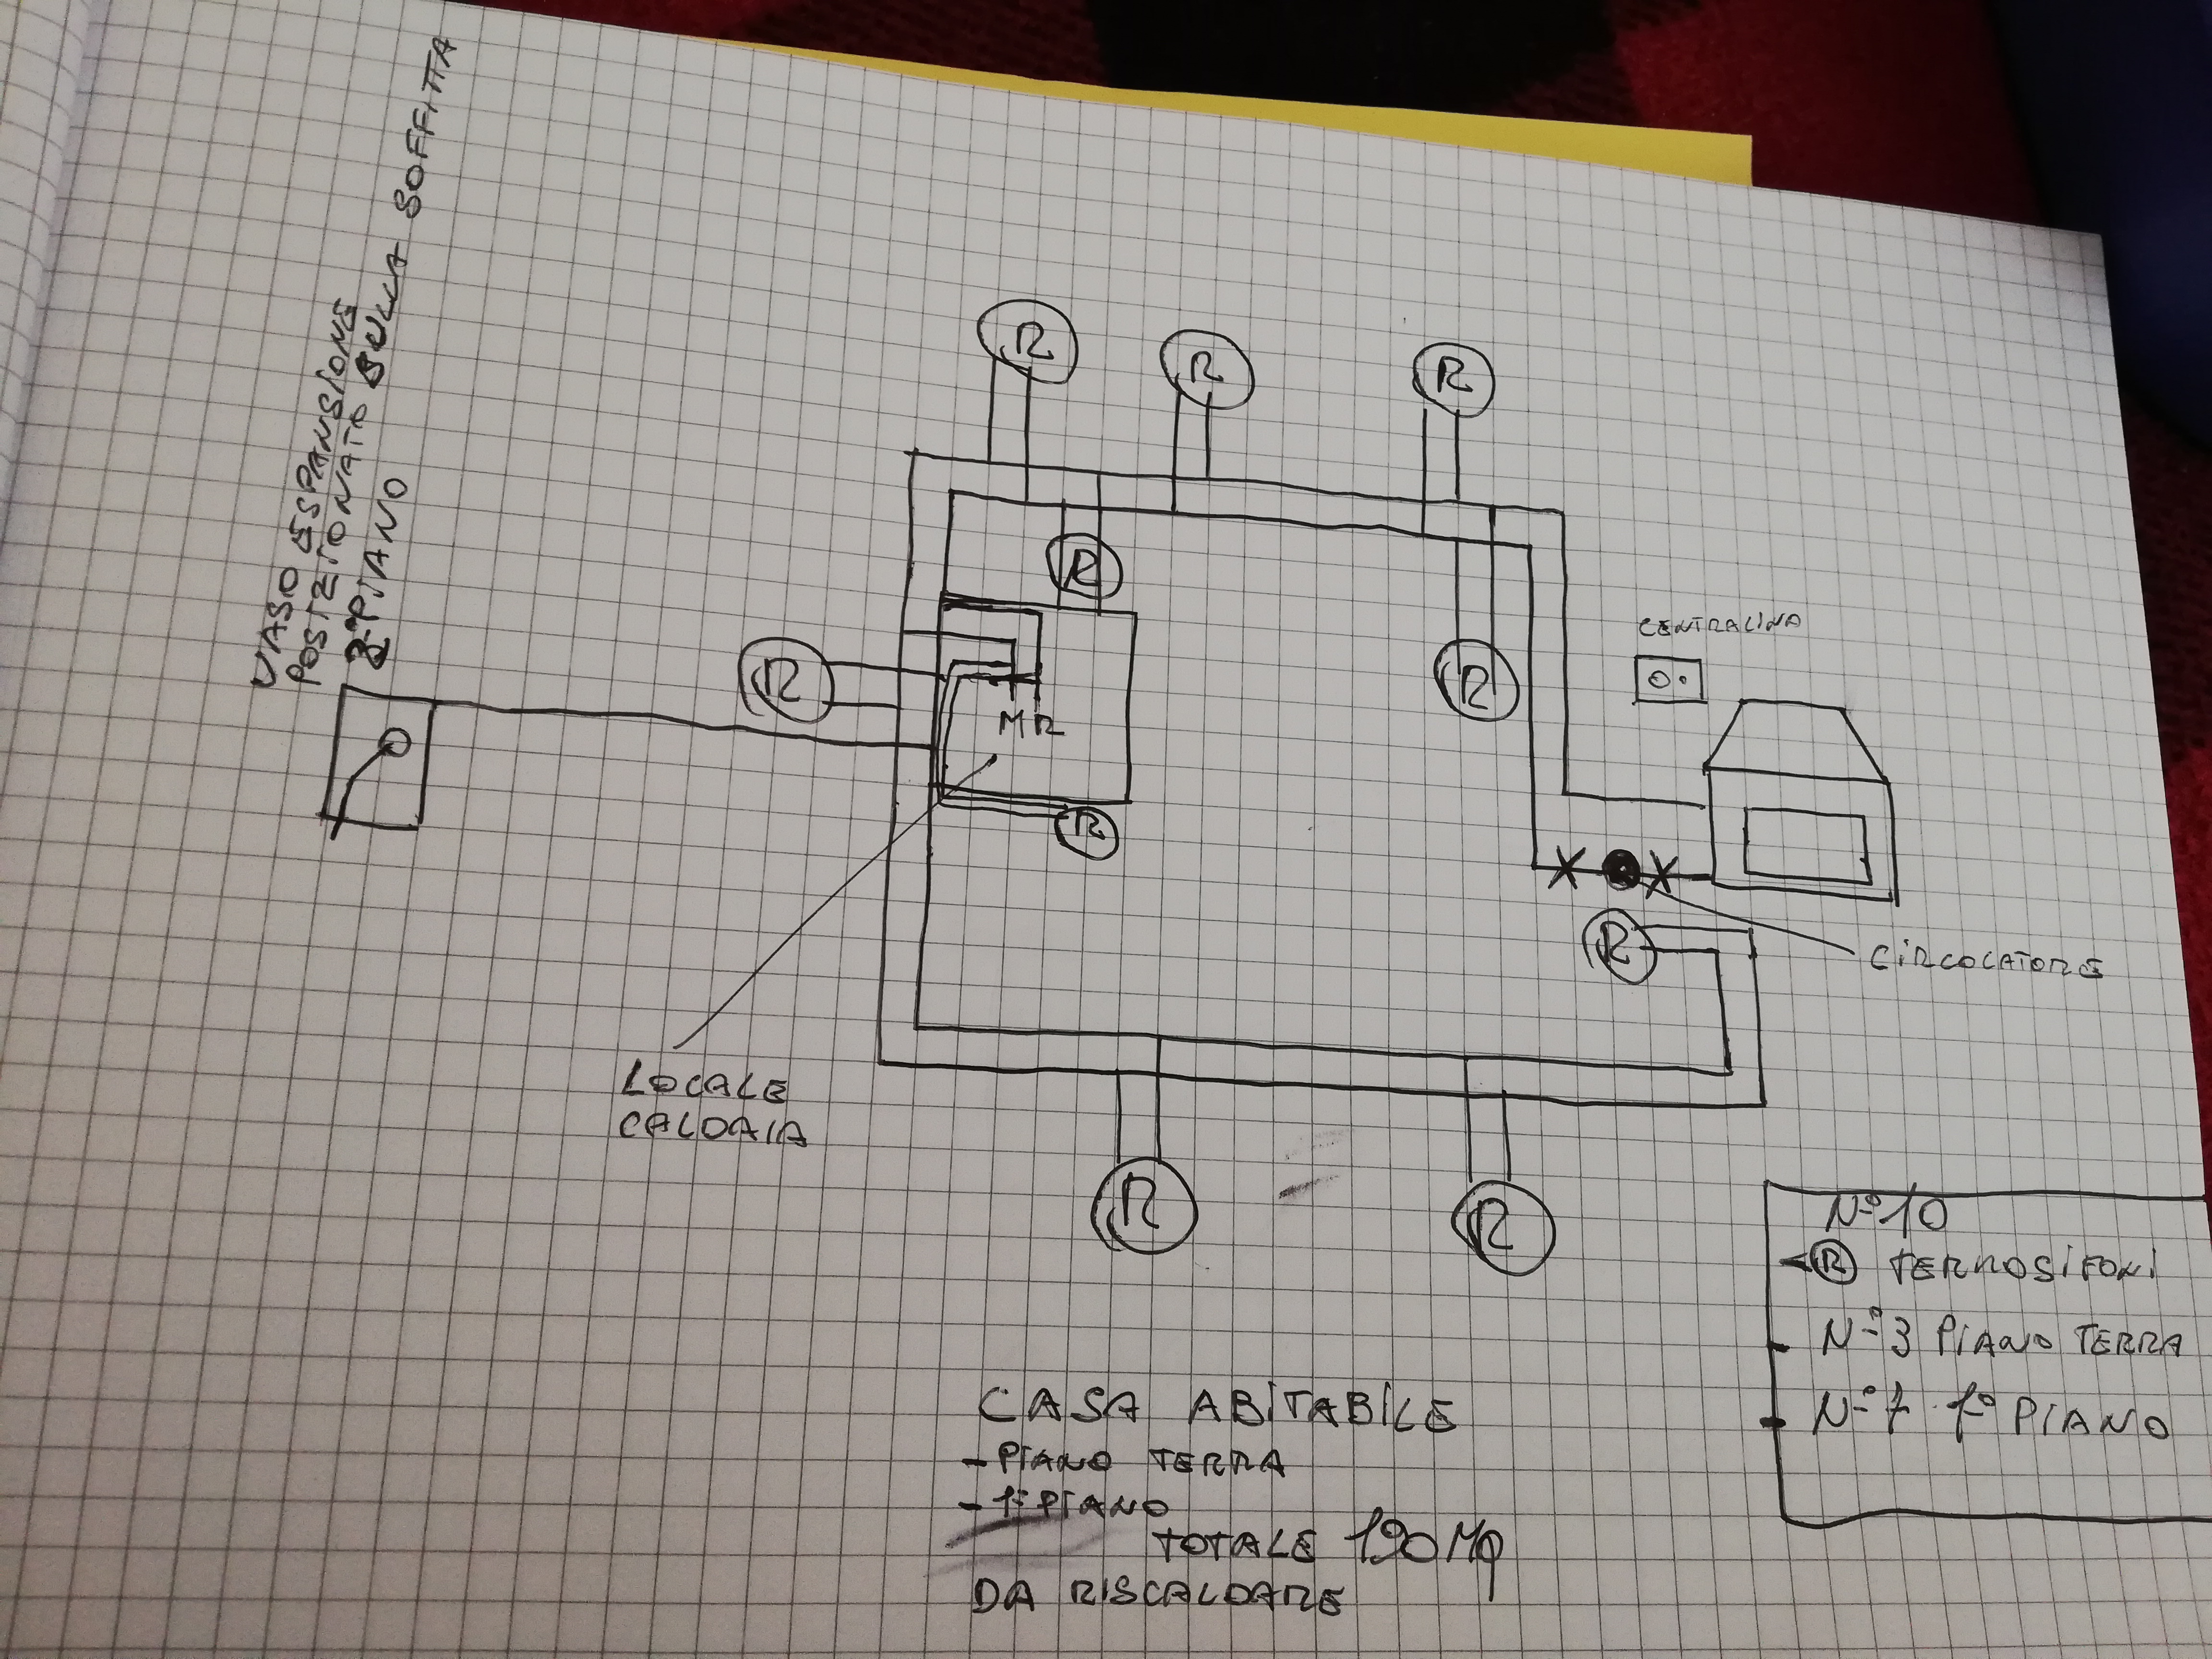 VASO ESPANSIONE
POSIZIONATO SULLA SOFFITTA
2° PIANO
R
R
R
R
R
R
R
R
R
R
MR
CENTRALINA
CIRCOLATORE
LOCALE
CALDAIA
N° 10
R TERMOSIFONI
N° 3 PIANO TERRA
N° 7 1° PIANO
CASA ABITABILE
- PIANO TERRA
- 1° PIANO
TOTALE 190 Mq
DA RISCALDARE